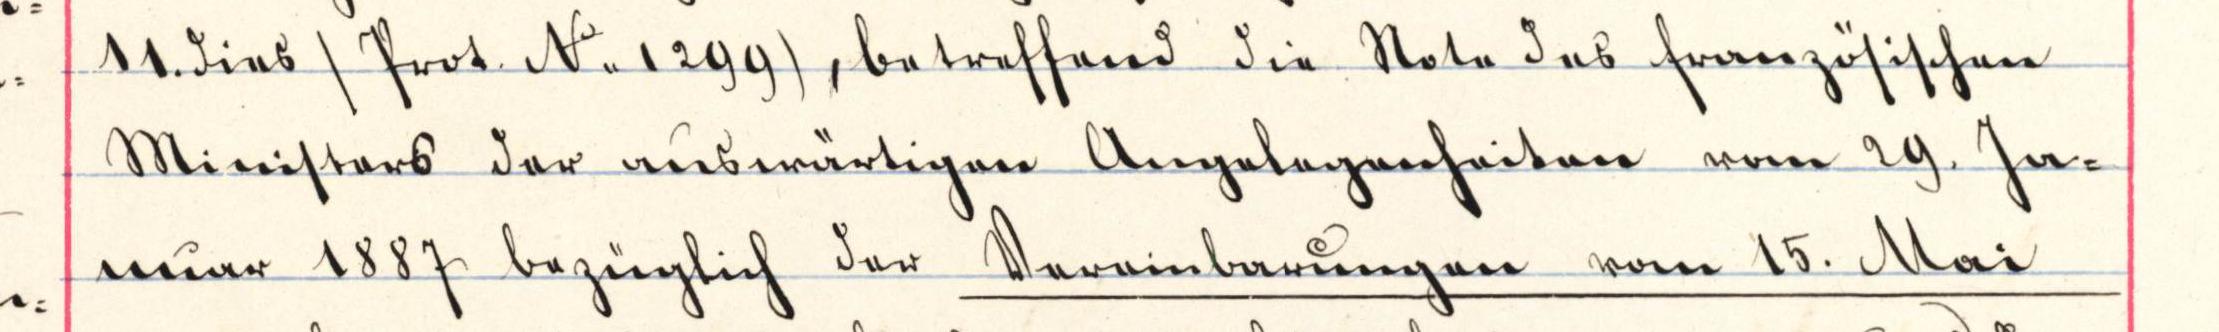 11. dies (Prot. No. 1299), betreffend die Note des französischen
Ministers der auswärtigen Angelegenheiten vom 29. Ja=
nuar 1887 bezüglich der Vereinbarungen vom 15. Mai